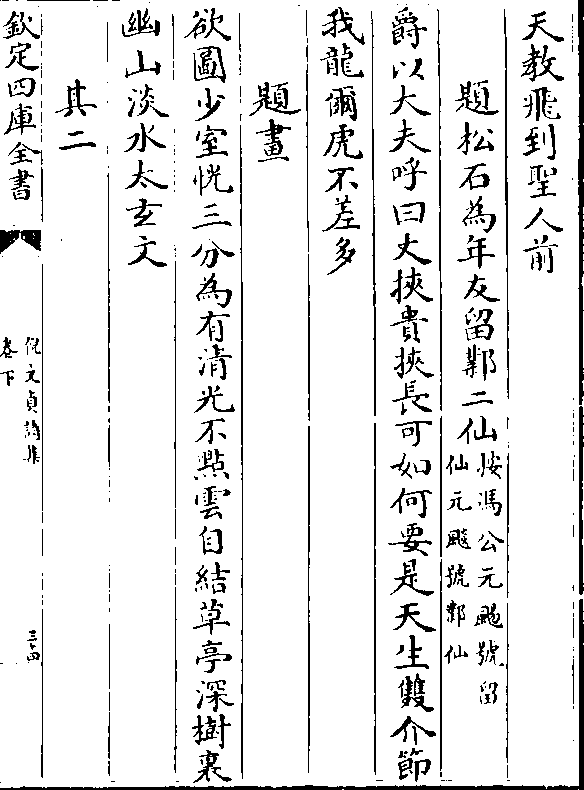 天教飛到聖人前
題松石為年友留鄴二仙
按馮公元颺號留
仙元飇號鄴仙
爵以大夫呼曰丈挾貴挾長可如何要是天生雙介節
我龍爾虎不差多
題畫
欲圖少室恍三分為有清光不㸃雲自結草亭深樹裏
幽山淡水太玄文
其二
欽定四庫全書
倪文貞詩集
卷下
三十四